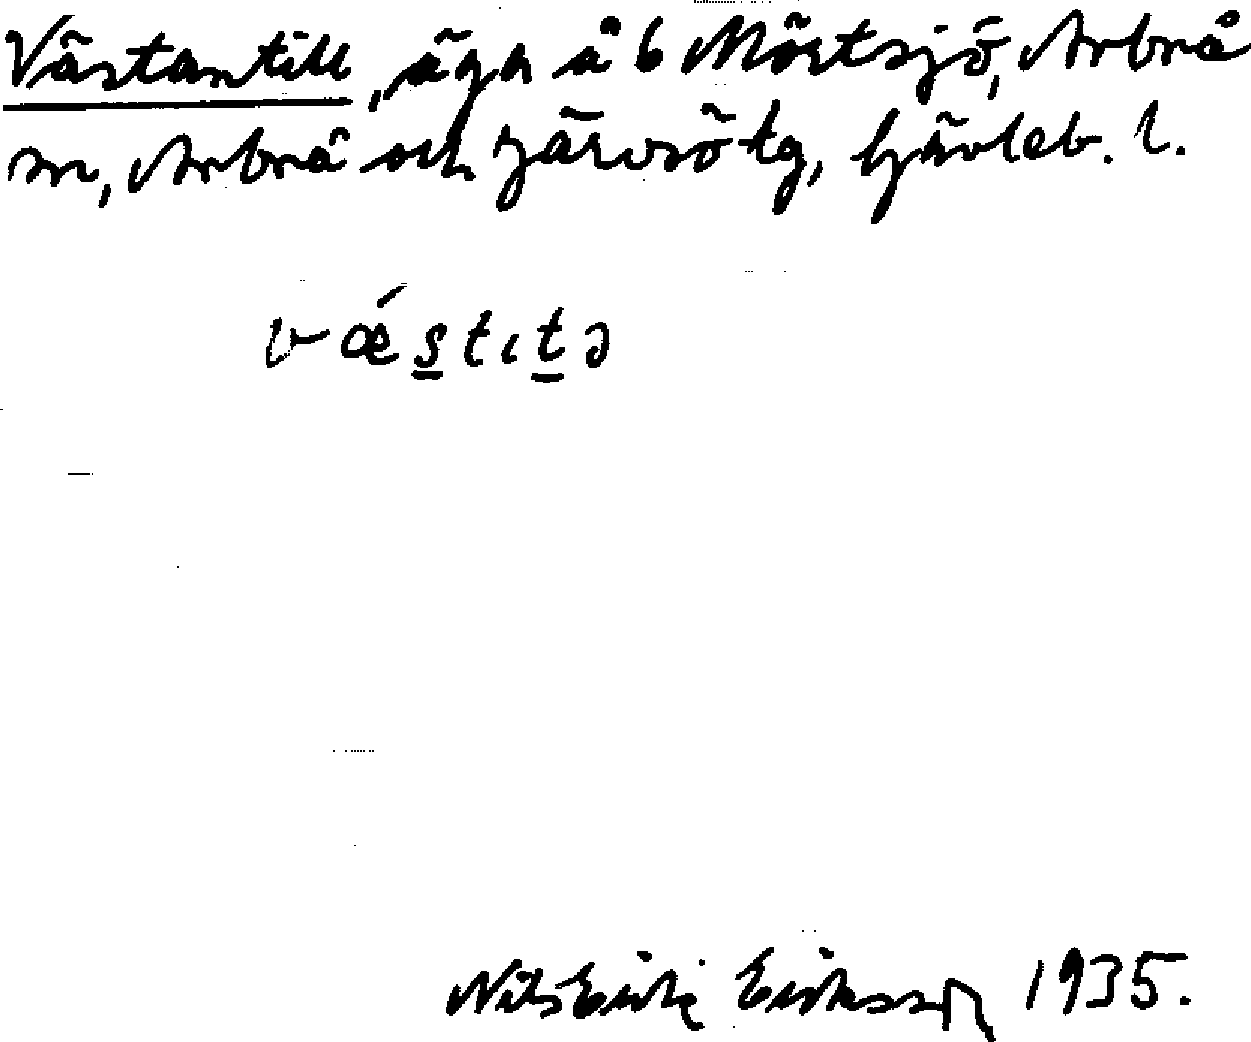 Västantill, äga å b Mörtsjö, Arbrå
sn, Arbrå och Järvsö tg, Gävleb. l.
vǽstıtə
Nils Erik Eriksson 1935.